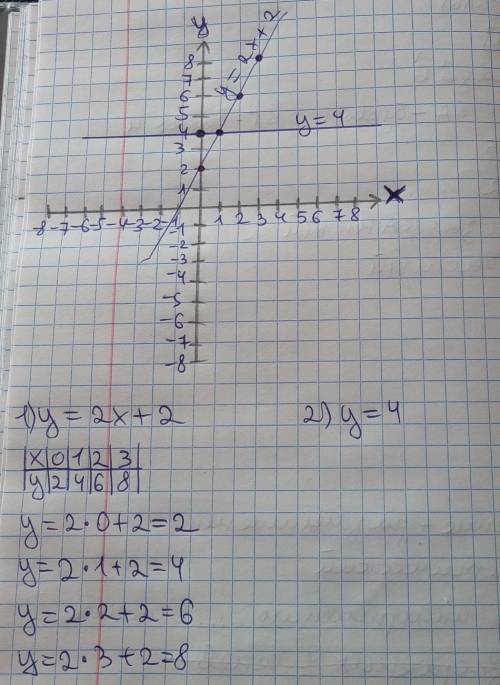 y
8
7
6
5
4
3
2
1
y=2x+2
y=4
x
-8 -7 -6 -5 -4 -3 -2 -1 1 2 3 4 5 6 7 8
-1
-2
-3
-4
-5
-6
-7
-8
1) y = 2x + 2
2) y = 4
x 0 1 2 3
y 2 4 6 8
y = 2 · 0 + 2 = 2
y = 2 · 1 + 2 = 4
y = 2 · 2 + 2 = 6
y = 2 · 3 + 2 = 8